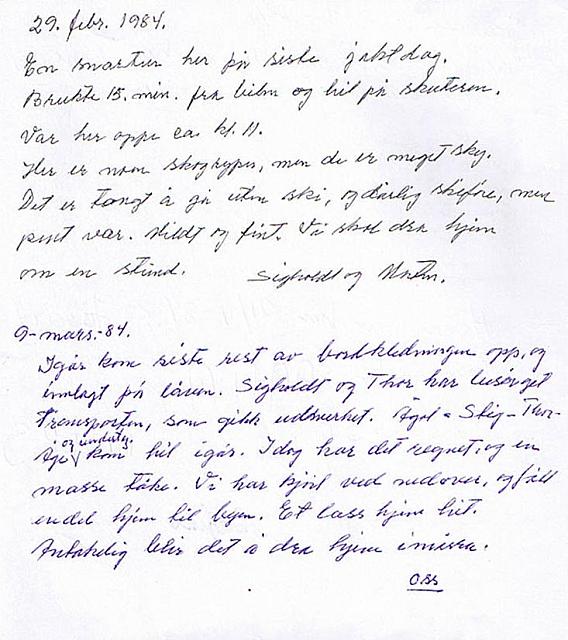 29. febr. 1984.
En snartur her på siste jaktdag.
Brukte 15. min. fra bilen og hit på skuteren.
Var her oppe ca kl. 11.
Her er noen skogryper, men de er meget sky.
Det er tungt å gå uten ski, og dårlig skiføre, men
pent vær. Mildt og fint. Vi skal dra hjem
om en stund. Sigholdt og
9-mars.-84.
Igår kom siste rest av bordkledningen opp, og
innlagt på låven. Sigholdt og Thor har besørget
Transporten, som gikk utmerket. Ågot - Skig - Thor-
og undertg.
kom hit igår. Idag har det regnet, og en
masse tåke. Vi har kjørt ved nedover, og fått
endel hjem til byen. Et lass hjem hit.
Antakelig blir det å dra hjem imorgen.
OSS